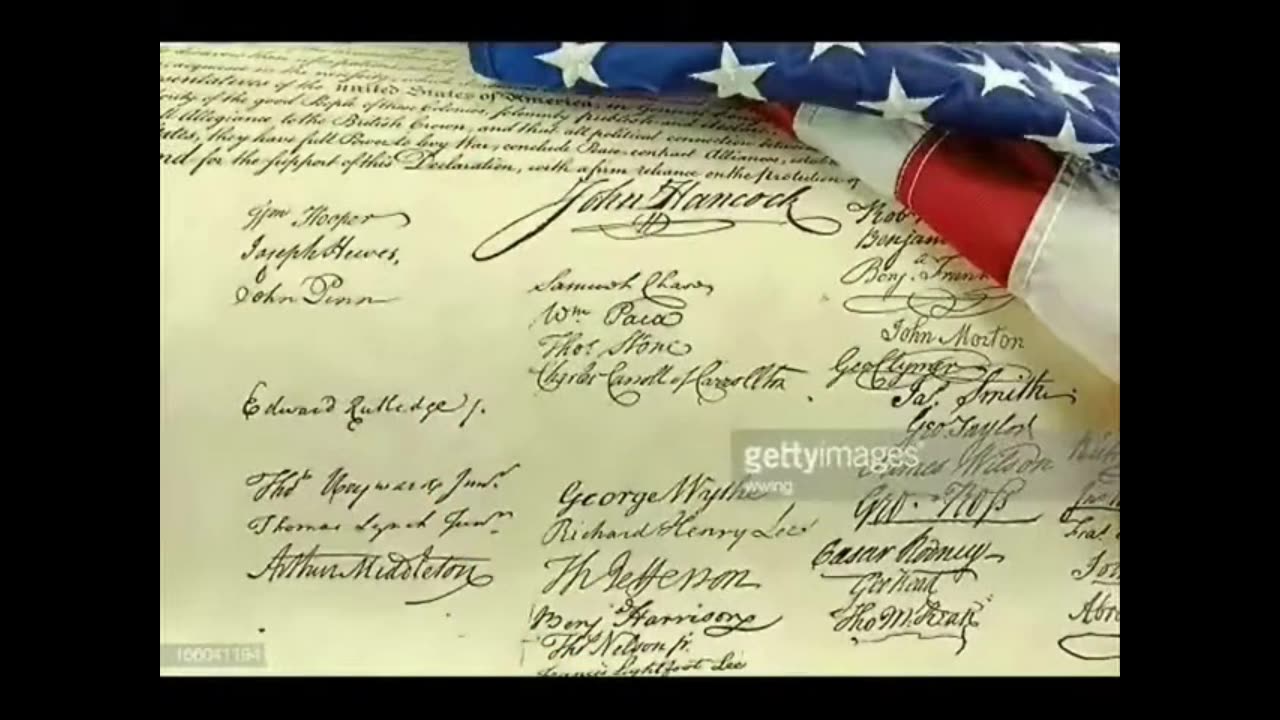 united States of America, in General
ority of the good People of these Colonies, solemnly publish and declare
ll Allegiance to the British Crown, and that all political connection between
tates, they have full Power to levy War, conclude Peace, contract Alliances, establ
nd for the support of this Declaration, with a firm reliance on the Protection of
John Hancock
Wm Hooper
Joseph Hewes,
John Penn
Edward Rutledge /.
Thos Heyward Junr.
Thomas Lynch Junr.
Arthur Middleton
Samuel Chase
Wm. Paca
Thos. Stone
Charles Carroll of Carrollton
George Wythe
Richard Henry Lee
Th Jefferson
Benj Harrison
Thos Nelson jr.
Francis Lightfoot Lee
Rob
Benjam
Benj. Frank
John Morton
Geo Clymer
Jas. Smith
Geo. Taylor
James Wilson
Geo. Ross
Caesar Rodney
Geo Read
Tho M:Kean
Abra
gettyimages
wwing
166041194